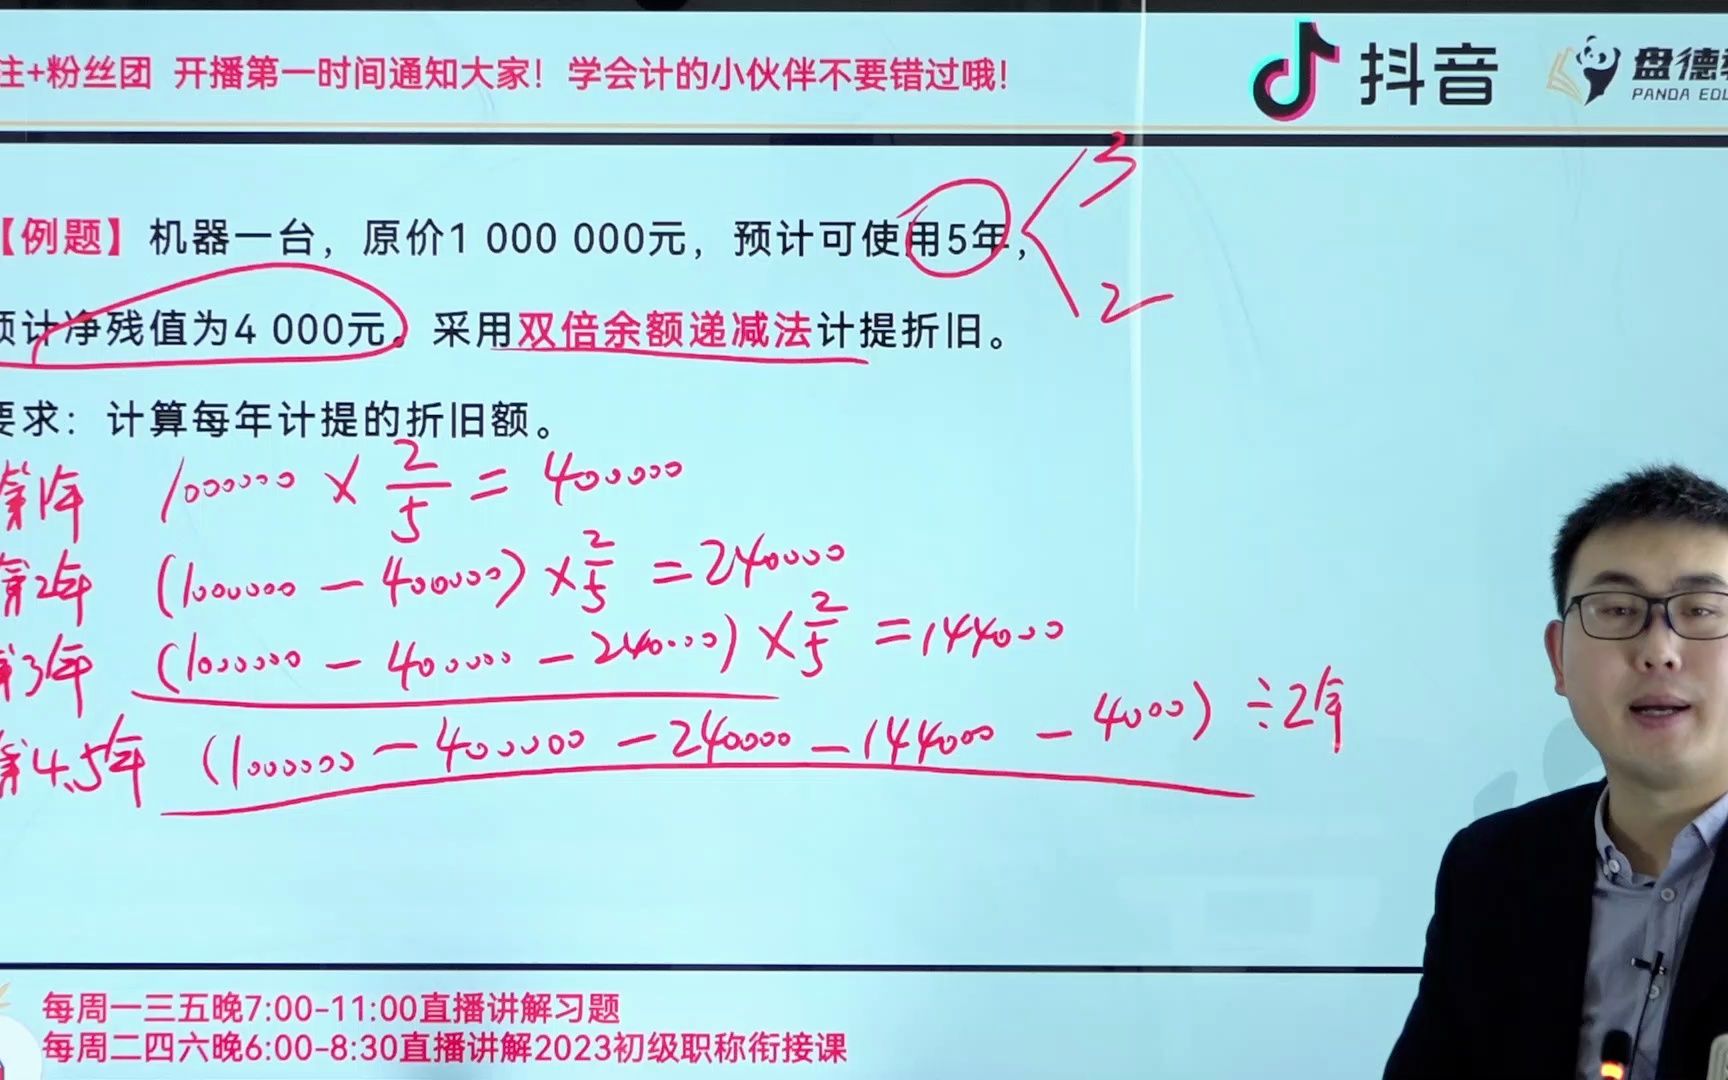 注+粉丝团 开播第一时间通知大家！学会计的小伙伴不要错过哦！
抖音
盘德
PANDA EDU
【例题】机器一台，原价1 000 000元，预计可使用5年，
3
2
预计净残值为4 000元。采用双倍余额递减法计提折旧。
要求：计算每年计提的折旧额。
第1年 1000000 × 2/5 = 400000
第2年 (1000000 - 400000) × 2/5 = 240000
第3年 (1000000 - 400000 - 240000) × 2/5 = 144000
第4.5年 (1000000 - 400000 - 240000 - 144000 - 4000) ÷ 2年
每周一三五晚7:00-11:00直播讲解习题
每周二四六晚6:00-8:30直播讲解2023初级职称衔接课